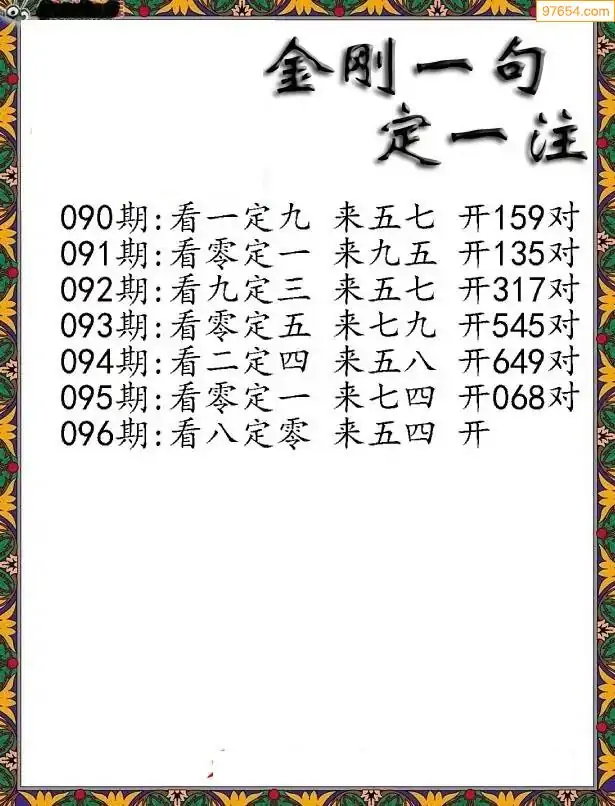 97654.com
金刚一句
定一注
090期:看一定九 来五七 开159对
091期:看零定一 来九五 开135对
092期:看九定三 来五七 开317对
093期:看零定五 来七九 开545对
094期:看二定四 来五八 开649对
095期:看零定一 来七四 开068对
096期:看八定零 来五四 开